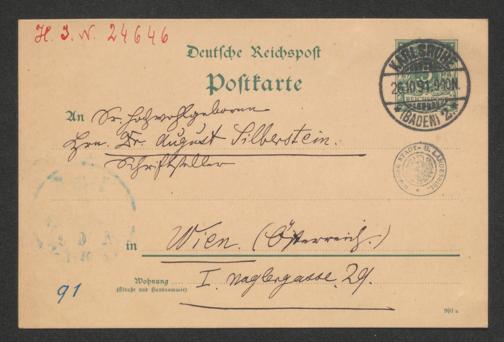 H. I. N. 24646
Deutsche Reichspost
Postkarte
KARLSRUHE
26.10.91.9-10N.
*(BADEN) 2.*
An Sr. Hochwohlgeboren
Hrn. Dr. August Silberstein.
Schriftsteller
STADT- U. LANDESBIBL.
in Wien. (Österreich.)
Wohnung
(Straße und Hausnummer)
I. Naglergasse. 29.
91